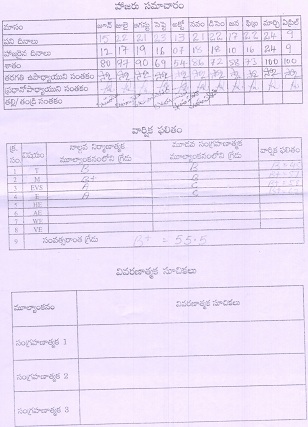 హాజరు సమాచారం
మాసం జూన్ జులై ఆగస్టు సెప్టె అక్టో నవం డిసెం జన ఫిబ్ర మార్చి ఏప్రిల్
పని దినాలు 15 22 21 23 13 21 22 17 22 24 9
హాజరైన దినాలు 12 17 19 16 07 18 10 16 24 9
శాతం 80 90 69 54 86 72 58 73 100 100
తరగతి ఉపాధ్యాయుని సంతకం
ప్రధానోపాధ్యాయుని సంతకం
తల్లి/ తండ్రి సంతకం
వార్షిక ఫలితం
క్ర. సం విషయం నాల్గవ నిర్మాణాత్మక మూల్యాంకనంలోని గ్రేడు మూడవ సంగ్రహణాత్మక మూల్యాంకనంలోని గ్రేడు వార్షిక ఫలితం
1 T B B
2 M B+ B
3 EVS B C
4 E B C
5 HE
6 AE
7 WE
8 VE
9 సంవత్సరాంత గ్రేడు B+ = 55.5
వివరణాత్మక సూచికలు
మూల్యాంకనం వివరణాత్మక సూచికలు
సంగ్రహణాత్మక 1
సంగ్రహణాత్మక 2
సంగ్రహణాత్మక 3